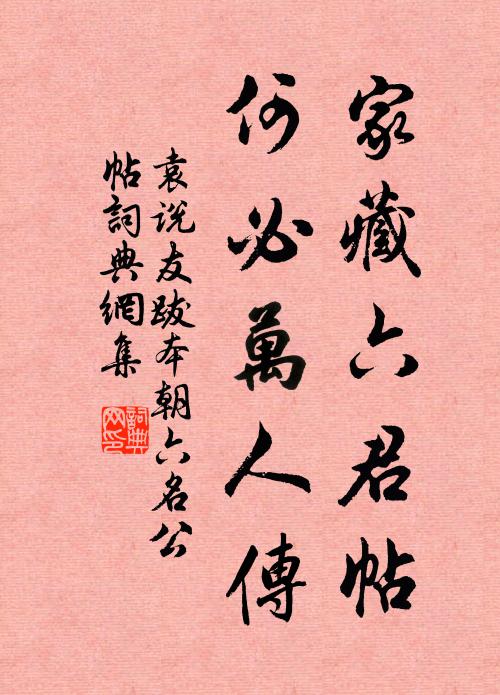 家藏六君帖
何必萬人傳
袁说友跋本朝六名公
帖詞典網集
詞典網印